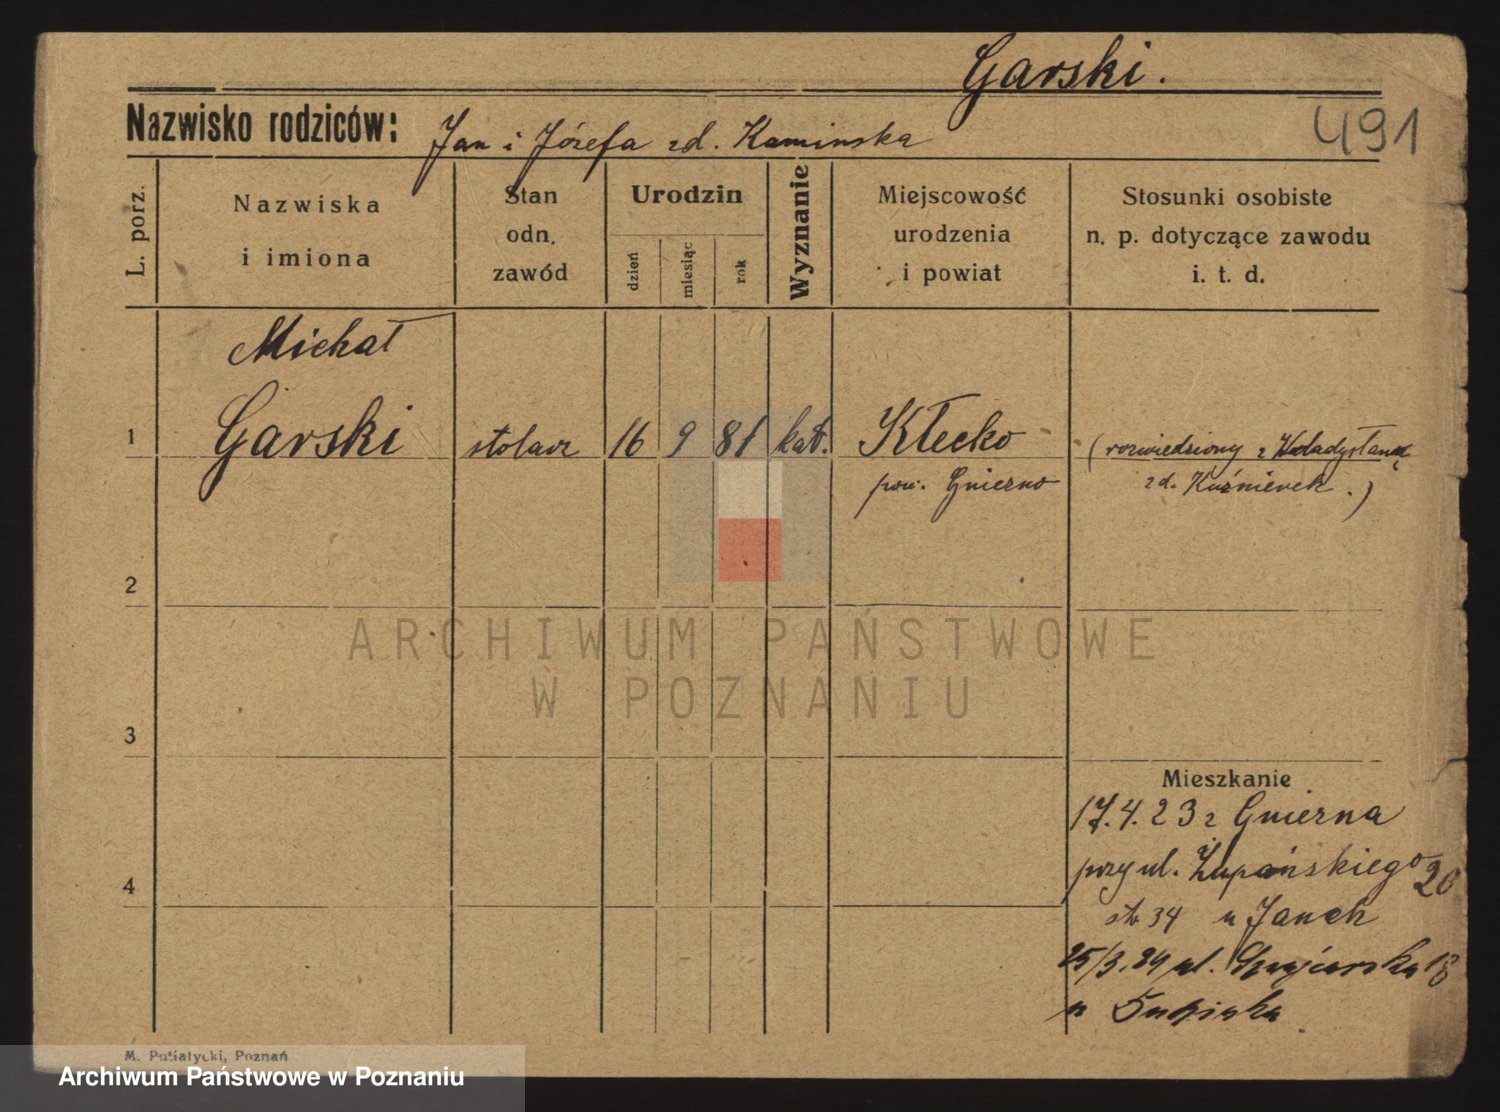 Garski.
Nazwisko rodziców: Jan i Józefa zd. Kaminska
491
L. porz.
Nazwiska
i imiona
Stan
odn.
zawód
Urodzin
dzień
miesiąc
rok
Wyznanie
Miejscowość
urodzenia
i powiat
Stosunki osobiste
n. p. dotyczące zawodu
i. t. d.
Michał
1 Garski stolarz 16 9 81 kat. Kłecko (rozwiedziony z Władysławą
pow. Gniezno zd. Kuźnierek.)
2
ARCHIWUM PAŃSTWOWE
W POZNANIU
3
Mieszkanie
17.4.23 z Gniezna
przy ul. Żupańskiego 20
4
34 u Janek
25/3.24 ul. 18
u
M. Putiatycki, Poznań
Archiwum Państwowe w Poznaniu